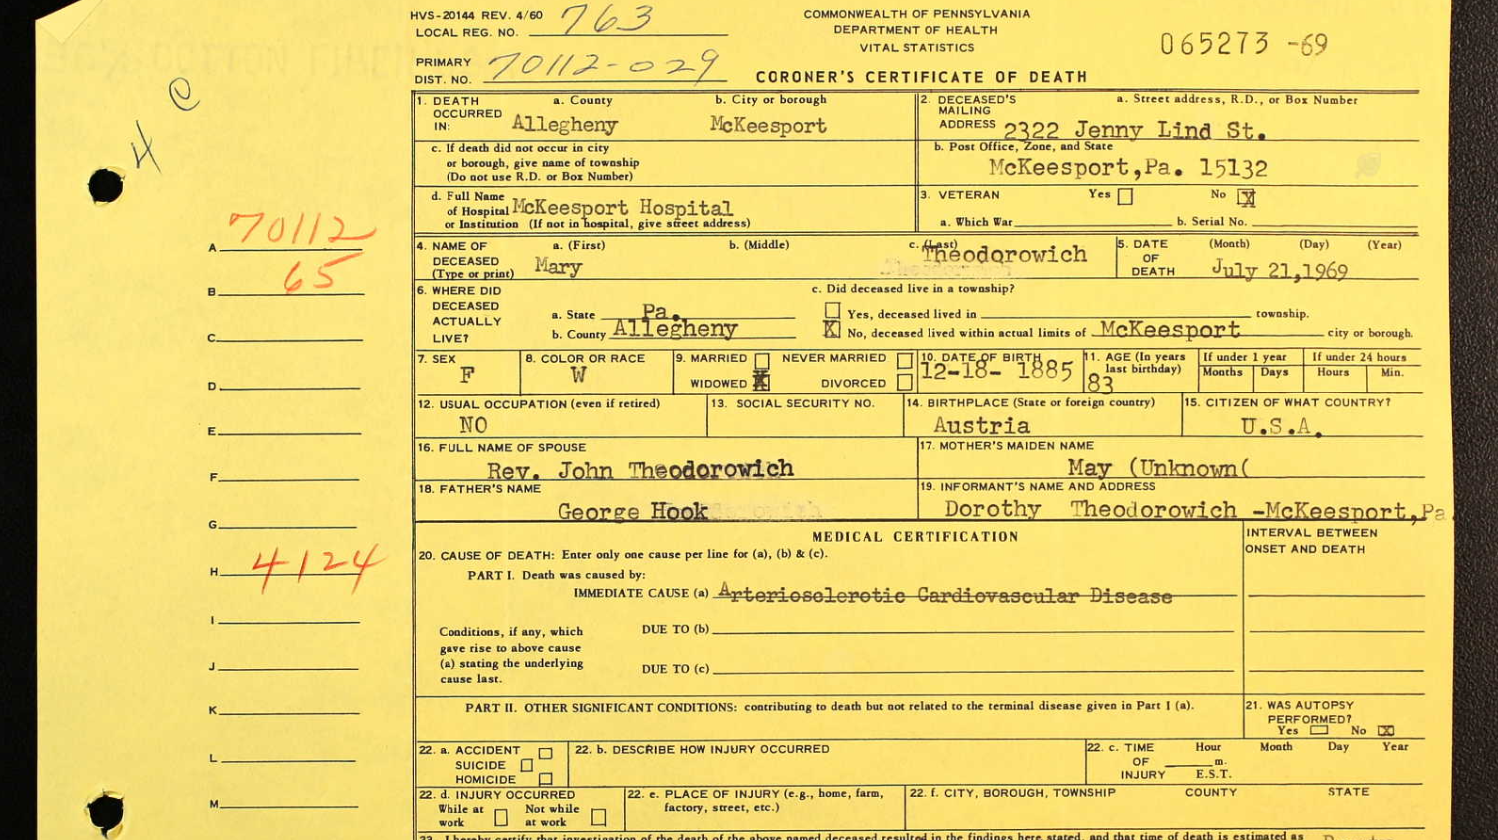 HVS-20144 REV. 4/60
LOCAL REG. NO. 763
COMMONWEALTH OF PENNSYLVANIA
DEPARTMENT OF HEALTH
VITAL STATISTICS
065273 -69
PRIMARY
DIST. NO. 70112-029
CORONER'S CERTIFICATE OF DEATH
4 C
1. DEATH OCCURRED IN:
a. County
Allegheny
b. City or borough
McKeesport
2. DECEASED'S MAILING ADDRESS
a. Street address, R.D., or Box Number
2322 Jenny Lind St.
c. If death did not occur in city
or borough, give name of township
(Do not use R.D. or Box Number)
b. Post Office, Zone, and State
McKeesport,Pa. 15132
d. Full Name
of Hospital McKeesport Hospital
or Institution (If not in hospital, give street address)
3. VETERAN Yes No X
a. Which War b. Serial No.
4. NAME OF DECEASED (Type or print)
a. (First) b. (Middle) c. (Last)
Mary Theodorowich
5. DATE OF DEATH
(Month) (Day) (Year)
July 21,1969
6. WHERE DID DECEASED ACTUALLY LIVE?
a. State Pa.
b. County Allegheny
c. Did deceased live in a township?
Yes, deceased lived in township.
X No, deceased lived within actual limits of McKeesport city or borough.
7. SEX
F
8. COLOR OR RACE
W
9. MARRIED NEVER MARRIED
WIDOWED X DIVORCED
10. DATE OF BIRTH
12-18- 1885
11. AGE (In years last birthday)
83
If under 1 year
Months Days
If under 24 hours
Hours Min.
12. USUAL OCCUPATION (even if retired)
NO
13. SOCIAL SECURITY NO.
14. BIRTHPLACE (State or foreign country)
Austria
15. CITIZEN OF WHAT COUNTRY?
U.S.A.
16. FULL NAME OF SPOUSE
Rev. John Theodorowich
17. MOTHER'S MAIDEN NAME
May (Unknown(
18. FATHER'S NAME
George Hook
19. INFORMANT'S NAME AND ADDRESS
Dorothy Theodorowich -McKeesport,Pa
MEDICAL CERTIFICATION
INTERVAL BETWEEN
ONSET AND DEATH
20. CAUSE OF DEATH: Enter only one cause per line for (a), (b) & (c).
PART I. Death was caused by:
IMMEDIATE CAUSE (a) Arteriosclerotic Cardiovascular Disease
Conditions, if any, which
gave rise to above cause
(a) stating the underlying
cause last.
DUE TO (b)
DUE TO (c)
PART II. OTHER SIGNIFICANT CONDITIONS: contributing to death but not related to the terminal disease given in Part I (a).
21. WAS AUTOPSY
PERFORMED?
Yes No X
22. a. ACCIDENT
SUICIDE
HOMICIDE
22. b. DESCRIBE HOW INJURY OCCURRED
22. c. TIME OF INJURY
Hour Month Day Year
m.
E.S.T.
22. d. INJURY OCCURRED
While at work Not while at work
22. e. PLACE OF INJURY (e.g., home, farm,
factory, street, etc.)
22. f. CITY, BOROUGH, TOWNSHIP COUNTY STATE
I hereby certify that investigation of the death of the above named deceased resulted in the findings here stated, and that time of death is estimated as
A 70112
B 65
C
D
E
F
G
H 4124
I
J
K
L
M